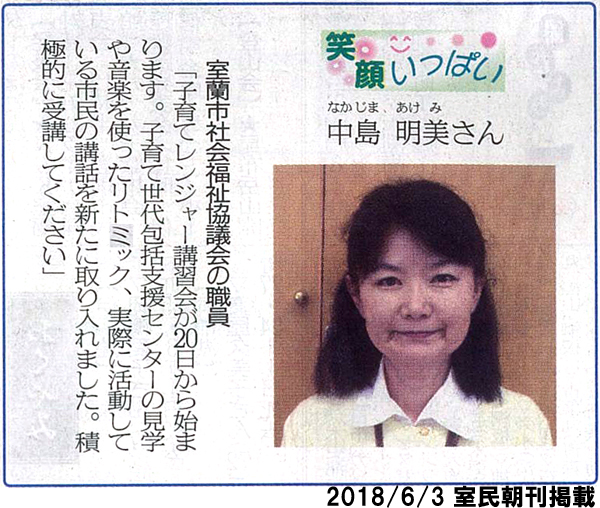 笑顔いっぱい
なかじま、あけみ
中島 明美さん
室蘭市社会福祉協議会の職員
「子育てレンジャー講習会が20日から始ま
ります。子育て世代包括支援センターの見学
や音楽を使ったリトミック、実際に活動して
いる市民の講話を新たに取り入れました。積
極的に受講してください」
2018/6/3 室民朝刊掲載